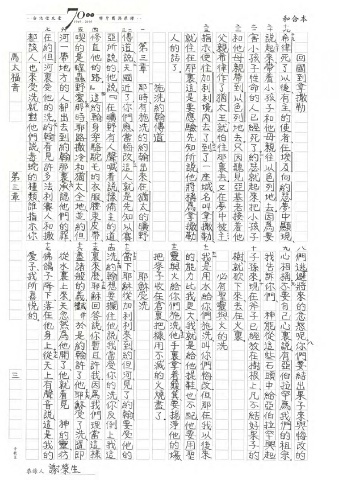 和合本
回國到拿撒勒
希律死了以後有主的使者在埃及向約瑟夢中顯現
說起來帶着小孩子和他母親往以色列地去因為要
害小孩子性命的人已經死了約瑟就起來把小孩子
和他母親帶到以色列地去只因聽見亞基老接着他
父親希律作了猶太王就怕往那裏去又在夢中被主
指示便往加利利境內去了到了一座城名叫拿撒勒
就住在那裏這是要應驗先知所說他將稱為拿撒勒
人的話了。
第三章 施洗約翰傳道
那時有施洗的約翰出來在猶太的曠野
傳道說天國近了你們應當悔改這人就是先知以賽
亞所說的他說在曠野有人聲喊着說預備主的道
修直他的路這約翰身穿駱駝毛的衣服腰束皮帶
吃的是蝗蟲野蜜那時耶路撒冷和猶太全地並約但
河一帶地方的人都出去到約翰那裏承認他們的罪
在約但河裏受他的洗約翰看見許多法利賽人和撒
都該人也來受洗就對他們說毒蛇的種類誰指示你
們逃避將來的忿怒呢你們要結出果子來與悔改的
心相稱不要自己心裏說有亞伯拉罕為我們的祖宗
我告訴你們 神能從這些石頭中給亞伯拉罕興起
子孫來現在斧子已經放在樹根上凡不結好果子的
樹就砍下來丟在火裏
必有聖靈與火的洗
我是用水給你們施洗叫你們悔改但那在我以後來
的能力比我更大我就是給他提鞋也不配他要用聖
靈與火給你們施洗他手裏拿着簸箕要揚淨他的場
把麥子收在倉裏把糠用不滅的火燒盡了。
耶穌受洗
當下耶穌從加利利來到約但河見了約翰要受他的
洗約翰想要攔住他說我當受你的洗你反倒上我這
裏來麼耶穌回答說你暫且許我因為我們理當這樣
盡諸般的義於是約翰許了他耶穌受了洗隨即
從水裏上來天忽然為他開了他就看見 神的靈彷
彿鴿子降下落在他身上從天上有聲音說這是我的
愛子我所喜悅的。
馬太福音 第三章 三